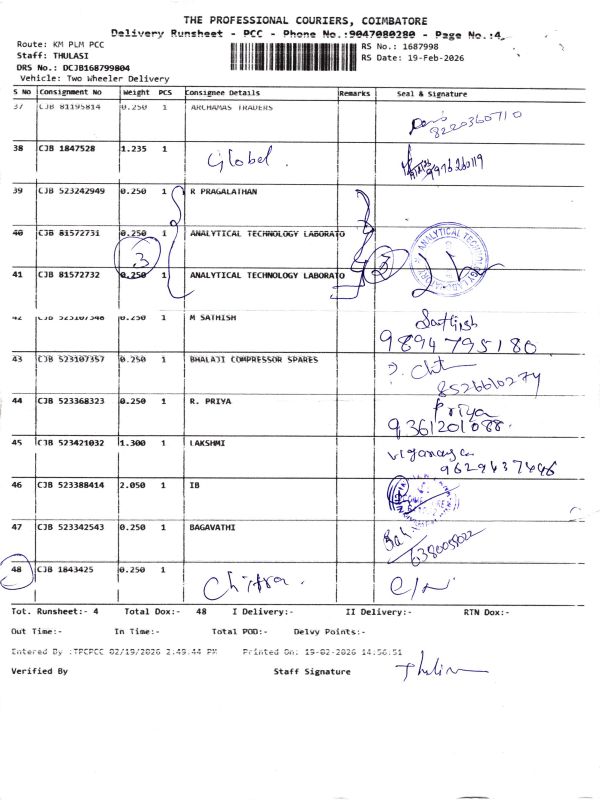 THE PROFESSIONAL COURIERS, COIMBATORE
Delivery Runsheet - PCC - Phone No.:9047080280 - Page No.:4
Route: KM PLM PCC
RS No.: 1687998
Staff: THULASI
RS Date: 19-Feb-2026
DRS No.: DCJB168799804
Vehicle: Two Wheeler Delivery
S No Consignment No Weight PCS Consignee Details Remarks Seal & Signature
37 CJB 81195814 0.250 1 ARCHAMAS TRADERS
8220360710
38 CJB 1847528 1.235 1 Global.
9976260119
39 CJB 523242949 0.250 1 R PRAGALATHAN
40 CJB 81572731 0.250 1 ANALYTICAL TECHNOLOGY LABORATO
3 3
ANALYTICAL TECHNOLOGY
41 CJB 81572732 0.250 1 ANALYTICAL TECHNOLOGY LABORATO
42 CJB 523107348 0.250 1 M SATHISH Sathish
9894795180
43 CJB 523107357 0.250 1 BHALAJI COMPRESSOR SPARES
8526610274
44 CJB 523368323 0.250 1 R. PRIYA Priya
9361201088.
45 CJB 523421032 1.300 1 LAKSHMI
9629437446
46 CJB 523388414 2.050 1 IB
47 CJB 523342543 0.250 1 BAGAVATHI
48 CJB 1843425 0.250 1 Chitra. C/N
Tot. Runsheet:- 4 Total Dox:- 48 I Delivery:- II Delivery:- RTN Dox:-
Out Time:- In Time:- Total POD:- Delvy Points:-
Entered By :TPCPCC 02/19/2026 2:49:44 PM Printed On: 19-02-2026 14:56:51
Verified By Staff Signature